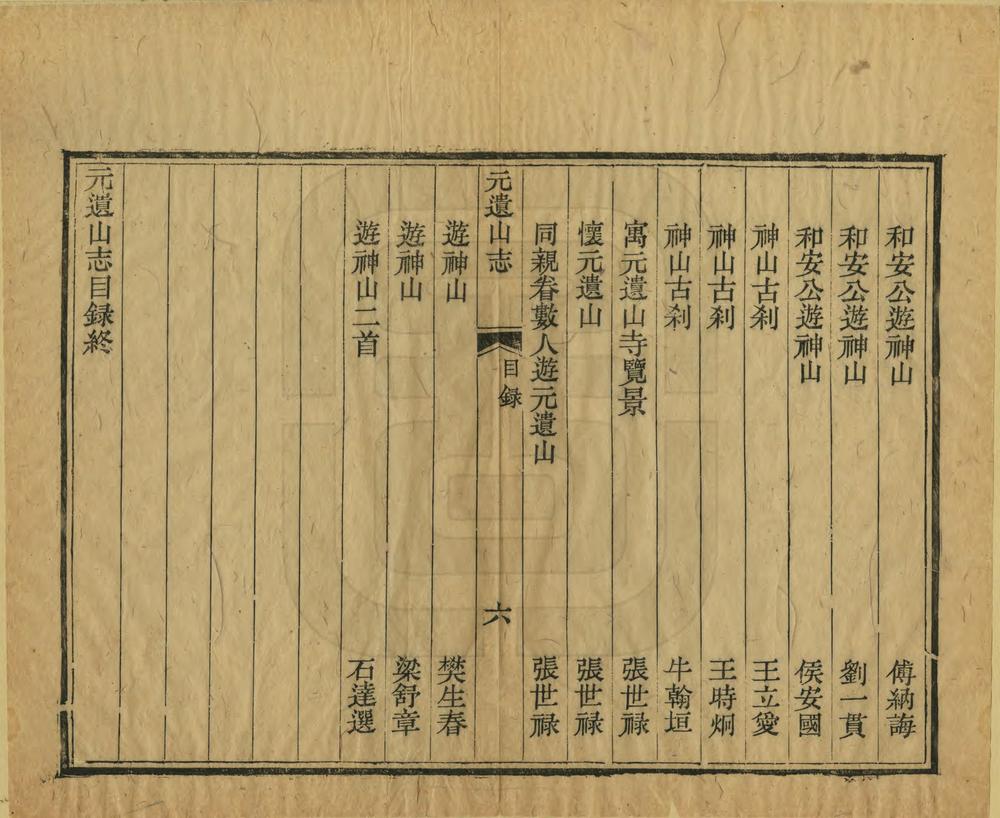 和安公遊神山　傅納誨
和安公遊神山　劉一貫
和安公遊神山　侯安國
神山古刹　王立愛
神山古刹　王時炯
神山古刹　牛翰垣
寓元遺山寺覽景　張世祿
懷元遺山　張世祿
同親眷數人遊元遺山　張世祿
元遺山志　目録　六
遊神山　樊生春
遊神山　梁舒章
遊神山二首　石達選
元遺山志目録終